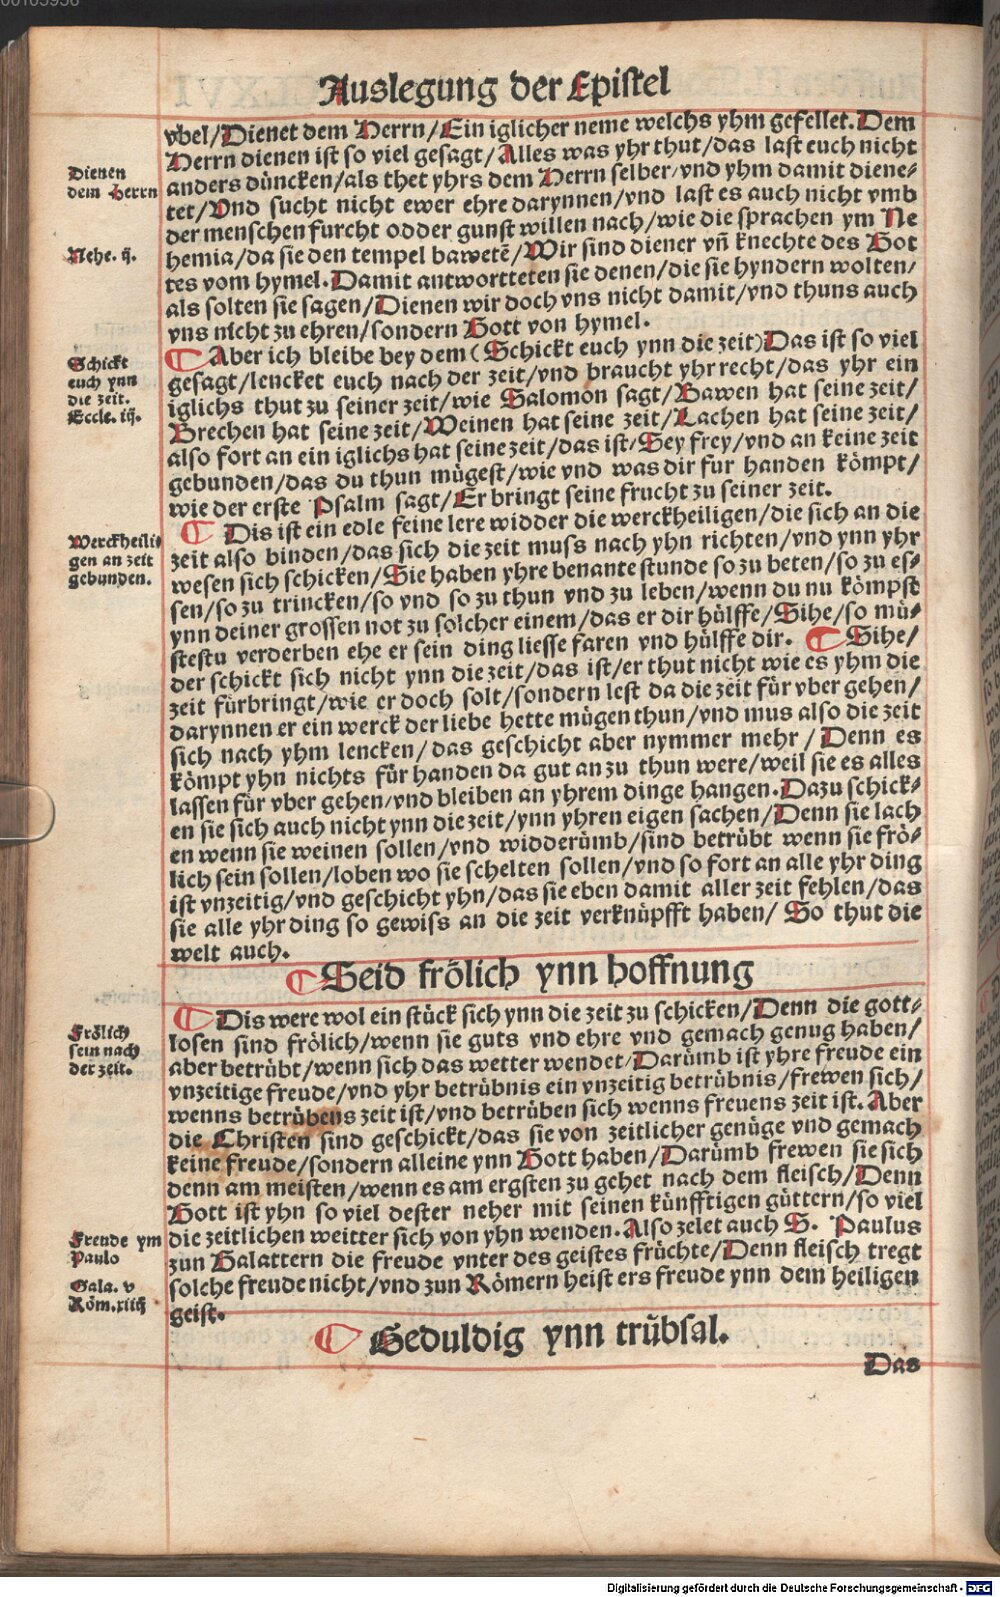 Auslegung der Epistel
vbel/Dienet dem Herrn/Ein iglicher neme welchs yhm gefellet. Dem
Herrn dienen ist so viel gesagt/Alles was yhr thut/das last euch nicht
anders düncken/als thet yhrs dem Herrn selber/vnd yhm damit diene⸗
tet/Vnd sucht nicht ewer ehre darynnen/vnd last es auch nicht vmb
der menschen furcht odder gunst willen nach/wie die sprachen ym Ne
hemia/da sie den tempel bawetē/Wir sind diener vñ knechte des Got
tes vom hymel. Damit antwortteten sie denen/die sie hyndern wolten/
als solten sie sagen/Dienen wir doch vns nicht damit/vnd thuns auch
vns nicht zu ehren/sondern Gott von hymel.
Dienen
dem Herrn
Nehe. ij.
¶ Aber ich bleibe bey dem (Schickt euch ynn die zeit) Das ist so viel
gesagt/lencket euch nach der zeit/vnd braucht yhr recht/das yhr ein
iglichs thut zu seiner zeit/wie Salomon sagt/Bawen hat seine zeit/
Brechen hat seine zeit/Weinen hat seine zeit/Lachen hat seine zeit/
also fort an ein iglichs hat seine zeit/das ist/Sey frey/vnd an keine zeit
gebunden/das du thun mügest/wie vnd was dir fur handen kömpt/
wie der erste Psalm sagt/Er bringt seine frucht zu seiner zeit.
Schickt
euch ynn
die zeit.
Eccle. iij.
¶ Dis ist ein edle feine lere widder die werckheiligen/die sich an die
zeit also binden/das sich die zeit muss nach yhn richten/vnd ynn yhr
wesen sich schicken/Sie haben yhre benante stunde so zu beten/so zu es⸗
sen/so zu trincken/so vnd so zu thun vnd zu leben/wenn du nu kömpst
ynn deiner grossen not zu solcher einem/das er dir hülffe/Sihe/so mü⸗
stestu verderben ehe er sein ding liesse faren vnd hülffe dir. ¶ Sihe/
der schickt sich nicht ynn die zeit/das ist/er thut nicht wie es yhm die
zeit fürbringt/wie er doch solt/sondern lest da die zeit für vber gehen/
darynnen er ein werck der liebe hette mügen thun/vnd mus also die zeit
sich nach yhm lencken/das geschicht aber nymmer mehr/Denn es
kömpt yhn nichts für handen da gut an zu thun were/weil sie es alles
lassen für vber gehen/vnd bleiben an yhrem dinge hangen. Dazu schick⸗
en sie sich auch nicht ynn die zeit/ynn yhren eigen sachen/Denn sie lach
en wenn sie weinen sollen/vnd widderümb/sind betrübt wenn sie frö⸗
lich sein sollen/loben wo sie schelten sollen/vnd so fort an alle yhr ding
ist vnzeitig/vnd geschicht yhn/das sie eben damit aller zeit fehlen/das
sie alle yhr ding so gewiss an die zeit verknüpfft haben/So thut die
welt auch.
Werckheili
gen an zeit
gebunden.
¶ Seid frölich ynn hoffnung
¶ Dis were wol ein stück sich ynn die zeit zu schicken/Denn die gott⸗
losen sind frölich/wenn sie guts vnd ehre vnd gemach genug haben/
aber betrübt/wenn sich das wetter wendet/Darümb ist yhre freude ein
vnzeitige freude/vnd yhr betrübnis ein vnzeitig betrübnis/frewen sich/
wenns betrübens zeit ist/vnd betrüben sich wenns freuens zeit ist. Aber
die Christen sind geschickt/das sie von zeitlicher genüge vnd gemach
keine freude/sondern alleine ynn Gott haben/Darümb frewen sie sich
denn am meisten/wenn es am ergsten zu gehet nach dem fleisch/Denn
Gott ist yhn so viel dester neher mit seinen künfftigen güttern/so viel
die zeitlichen weitter sich von yhn wenden. Also zelet auch S. Paulus
zun Galattern die freude vnter des geistes früchte/Denn fleisch tregt
solche freude nicht/vnd zun Römern heist ers freude ynn dem heiligen
geist.
Frölich
sein nach
der zeit.
Freude ym
Paulo
Gala. v
Röm. xiiij
¶ Geduldig ynn trübsal.
Das
Digitalisierung gefördert durch die Deutsche Forschungsgemeinschaft - DFG